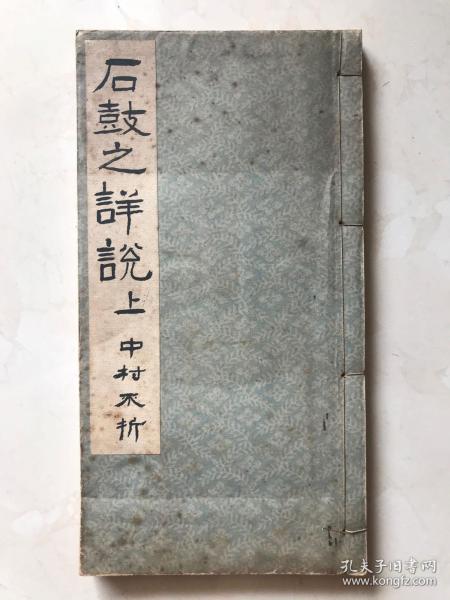 石鼓之詳説上
中村不折
孔夫子旧书网
www.kongfz.com